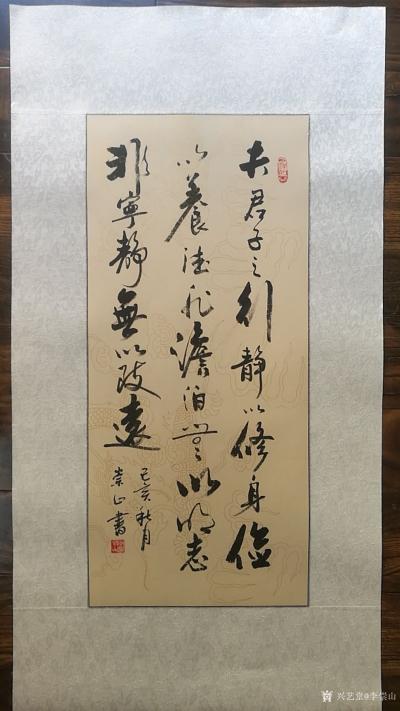 夫君子之行靜以修身儉
以養德非澹泊無以明志
非寧靜無以致遠
己亥秋月
崇山書
兴艺堂@李崇山